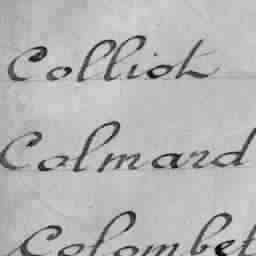 Colliot
Colmard
Colombet